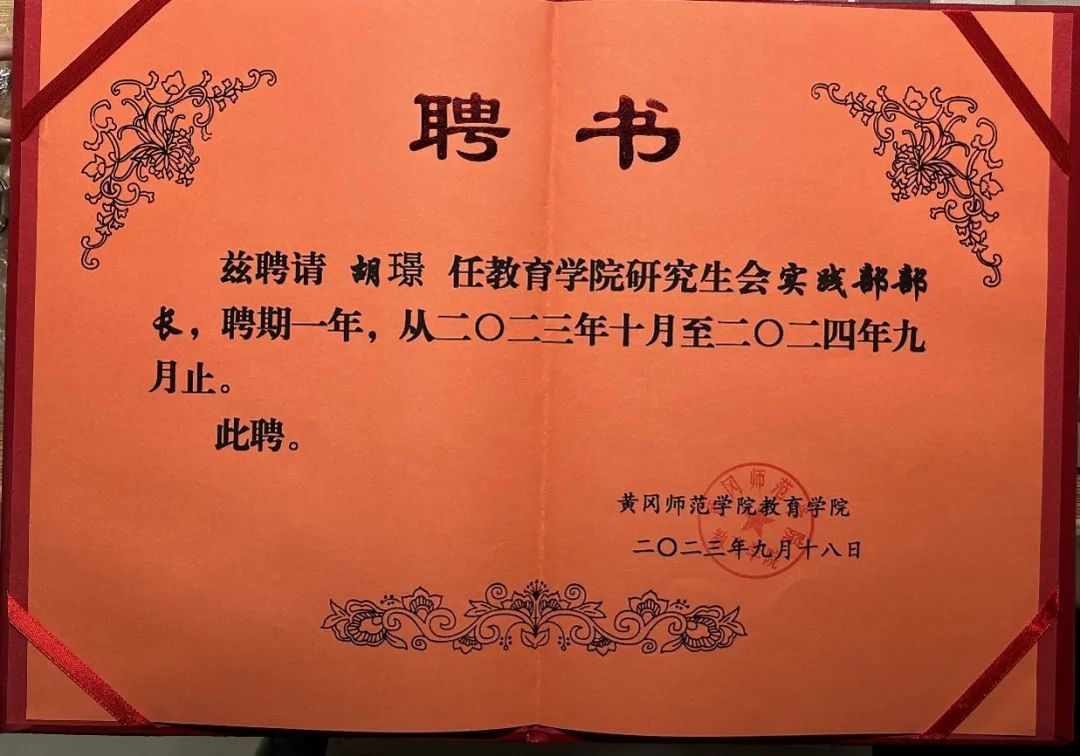 聘书
兹聘请 胡璟 任教育学院研究生会实践部部
长，聘期一年，从二〇二三年十月至二〇二四年九
月止。
此聘。
黄冈师范学院教育学院
二〇二三年九月十八日